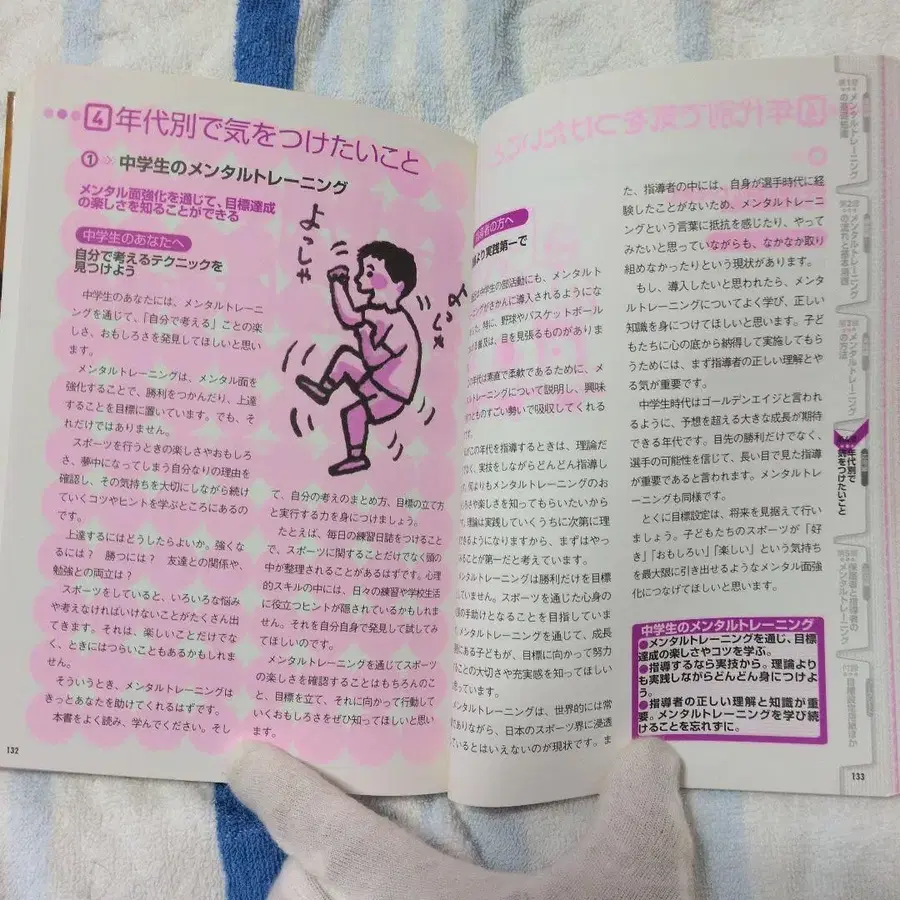 4 年代別で気をつけたいこと
① 中学生のメンタルトレーニング
メンタル面強化を通じて、目標達成
の楽しさを知ることができる
中学生のあなたへ
自分で考えるテクニックを
見つけよう
中学生のあなたには、メンタルトレーニ
ングを通じて、「自分で考える」ことの楽
しさ、おもしろさを発見してほしいと思い
ます。
メンタルトレーニングは、メンタル面を
強化することで、勝利をつかんだり、上達
することを目標に置いています。でも、そ
れだけではありません。
スポーツを行うときの楽しさやおもしろ
さ、夢中になってしまう自分なりの理由を
確認し、その気持ちを大切にしながら続け
ていくコツやヒントを学ぶところにあるの
です。
上達するにはどうしたらよいか。強くな
るには？ 勝つには？ 友達との関係や、
勉強との両立は？
スポーツをしていると、いろいろな悩み
や考えなければいけないことがたくさん出
てきます。それは、楽しいことだけでな
く、ときにはつらいこともあるかもしれま
せん。
そういうとき、メンタルトレーニングは
きっとあなたを助けてくれるはずです。
本書をよく読み、学んでください。そし
よっしゃ
よっしゃ
て、自分の考えのまとめ方、目標の立て方
と実行する力を身につけましょう。
たとえば、毎日の練習日誌をつけること
で、スポーツに関することだけでなく頭の
中が整理されることがあるはずです。心理
的スキルの中には、日々の練習や学校生活
に役立つヒントが隠されているかもしれま
せん。それを自分自身で発見して試してみ
てほしいのです。
メンタルトレーニングを通じてスポーツ
の楽しさを確認することはもちろんのこ
と、目標を立て、それに向かって行動して
いくおもしろさをぜひ知ってほしいと思い
ます。
132
導者の方へ
より実践第一で
中学生の部活動にも、メンタルト
ニングがさかんに導入されるようにな
ました。特に、野球やバスケットボール
る普及は、目を見張るものがありま
年代は素直で柔軟であるために、メ
ルトレーニングについて説明し、興味
つとものすごい勢いで吸収してくれる
です。
この年代を指導するときは、理論だ
なく、実技をしながらどんどん指導し
何よりもメンタルトレーニングのお
ろさや楽しさを知ってもらいたいから
理論は実践していくうちに次第に理
できるようになりますから、まずはやっ
ることが第一だと考えています。
メンタルトレーニングは勝利だけを目標
していません。スポーツを通じた心身の
の手助けとなることを目指していま
メンタルトレーニングを通じて、成長
にある子どもが、目標に向かって努力
ことの大切さや充実感を知ってほしい
っています。
メンタルトレーニングは、世界的には常
ありながら、日本のスポーツ界に浸透
ているとはいえないのが現状です。ま
た、指導者の中には、自身が選手時代に経
験したことがないため、メンタルトレーニ
ングという言葉に抵抗を感じたり、やって
みたいと思っていながらも、なかなか取り
組めなかったりという現状があります。
もし、導入したいと思われたら、メンタ
ルトレーニングについてよく学び、正しい
知識を身につけてほしいと思います。子ど
もたちに心の底から納得して実施してもら
うためには、まず指導者の正しい理解とや
る気が重要です。
中学生時代はゴールデンエイジと言われ
るように、予想を超える大きな成長が期待
できる年代です。目先の勝利だけでなく、
選手の可能性を信じて、長い目で見た指導
が重要であると言われます。メンタルトレ
ーニングも同様です。
とくに目標設定は、将来を見据えて行い
ましょう。子どもたちのスポーツが「好
き」「おもしろい」「楽しい」という気持ち
を最大限に引き出せるようなメンタル面強
化につなげてほしいと思います。
中学生のメンタルトレーニング
●メンタルトレーニングを通じ、目標
達成の楽しさやコツを学ぶ。
●指導するなら実技から。理論より
も実践しながらどんどん身につけよ
う。
●指導者の正しい理解と知識が重
要。メンタルトレーニングを学び続
けることを忘れずに。
133
第1章 メンタルトレーニング
の基礎知識
第2章 メンタルトレーニング
の流れと基本原理
第3章 メンタルトレーニング
の方法
年代別で
気をつけたいこと
第5章 保護者と指導者の
メンタルトレーニング
付録